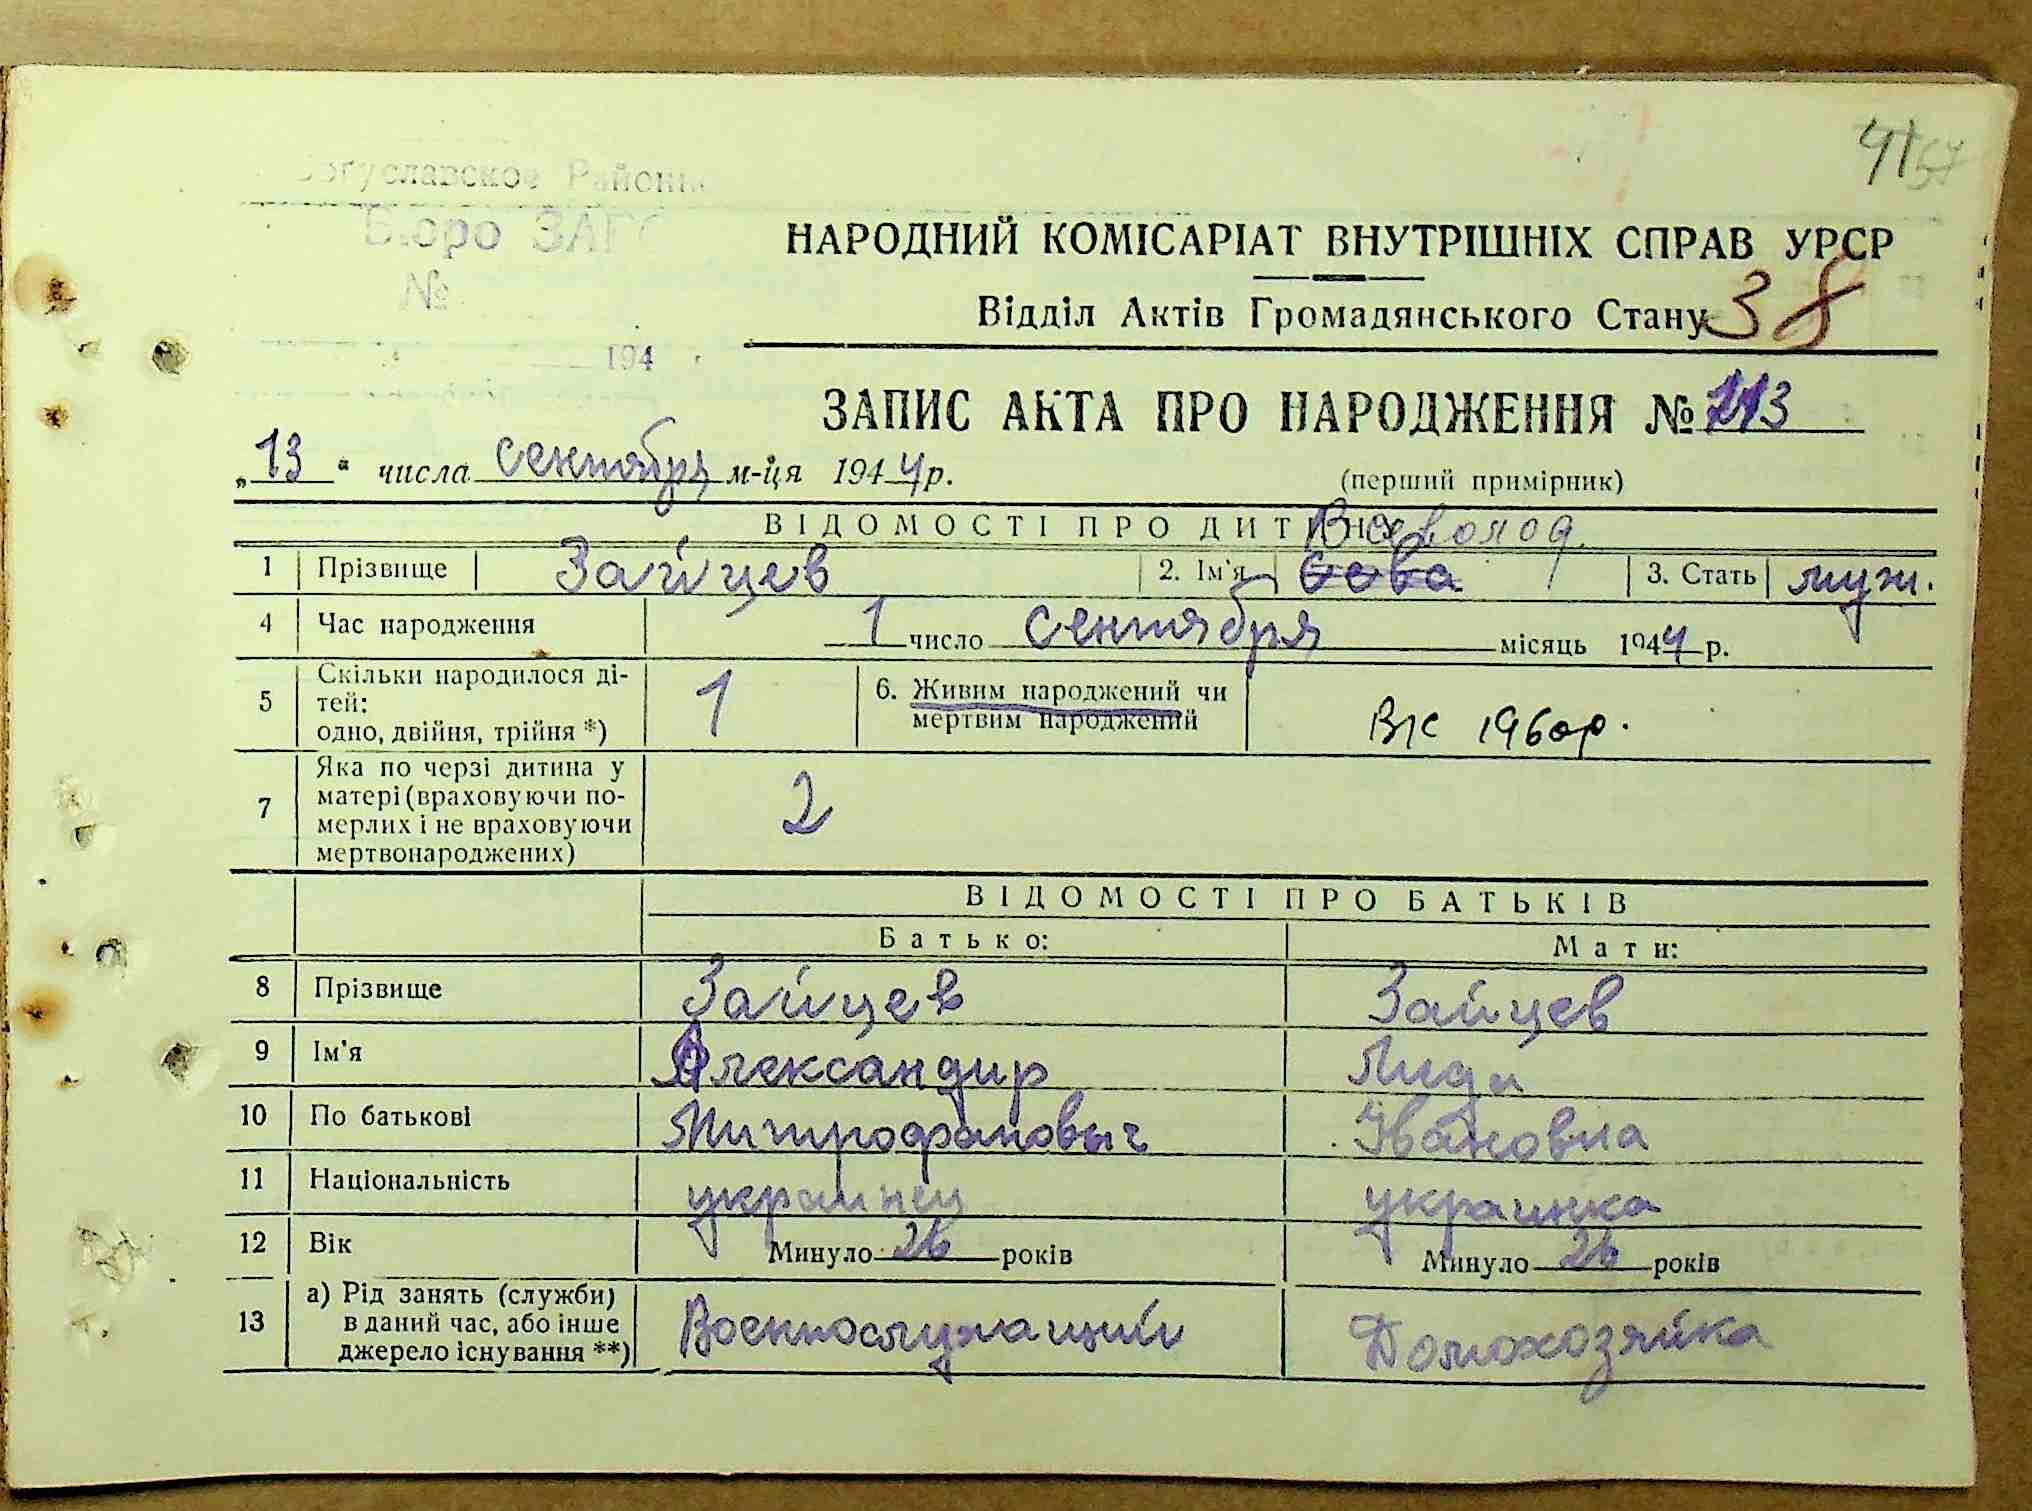 Богуславское Районн
Бюро ЗАГС
№
194
41
57
НАРОДНИЙ КОМІСАРІАТ ВНУТРІШНІХ СПРАВ УРСР
Відділ Актів Громадянського Стану 38
ЗАПИС АКТА ПРО НАРОДЖЕННЯ № 113
„13" числа сентября м-ця 1944 р.
(перший примірник)
ВІДОМОСТІ ПРО ДИТИНУ
Всеволод
1 Прізвище Зайцев 2. Ім'я Сева 3. Стать муж.
4 Час народження 1 число сентября місяць 1944 р.
5 Скільки народилося ді-
тей:
одно, двійня, трійня *) 1
6. Живим народжений чи
мертвим народжений
ВК 1960р.
7 Яка по черзі дитина у
матері (враховуючи по-
мерлих і не враховуючи
мертвонароджених) 2
ВІДОМОСТІ ПРО БАТЬКІВ
Батько: Мати:
8 Прізвище Зайцев Зайцев
9 Ім'я Александир Лида
10 По батькові Митрофановыч Івановна
11 Національність украинец украинка
12 Вік Минуло 26 років Минуло 26 років
13 а) Рід занять (служби)
в даний час, або інше
джерело існування **) Военнослужащий Домохозяйка